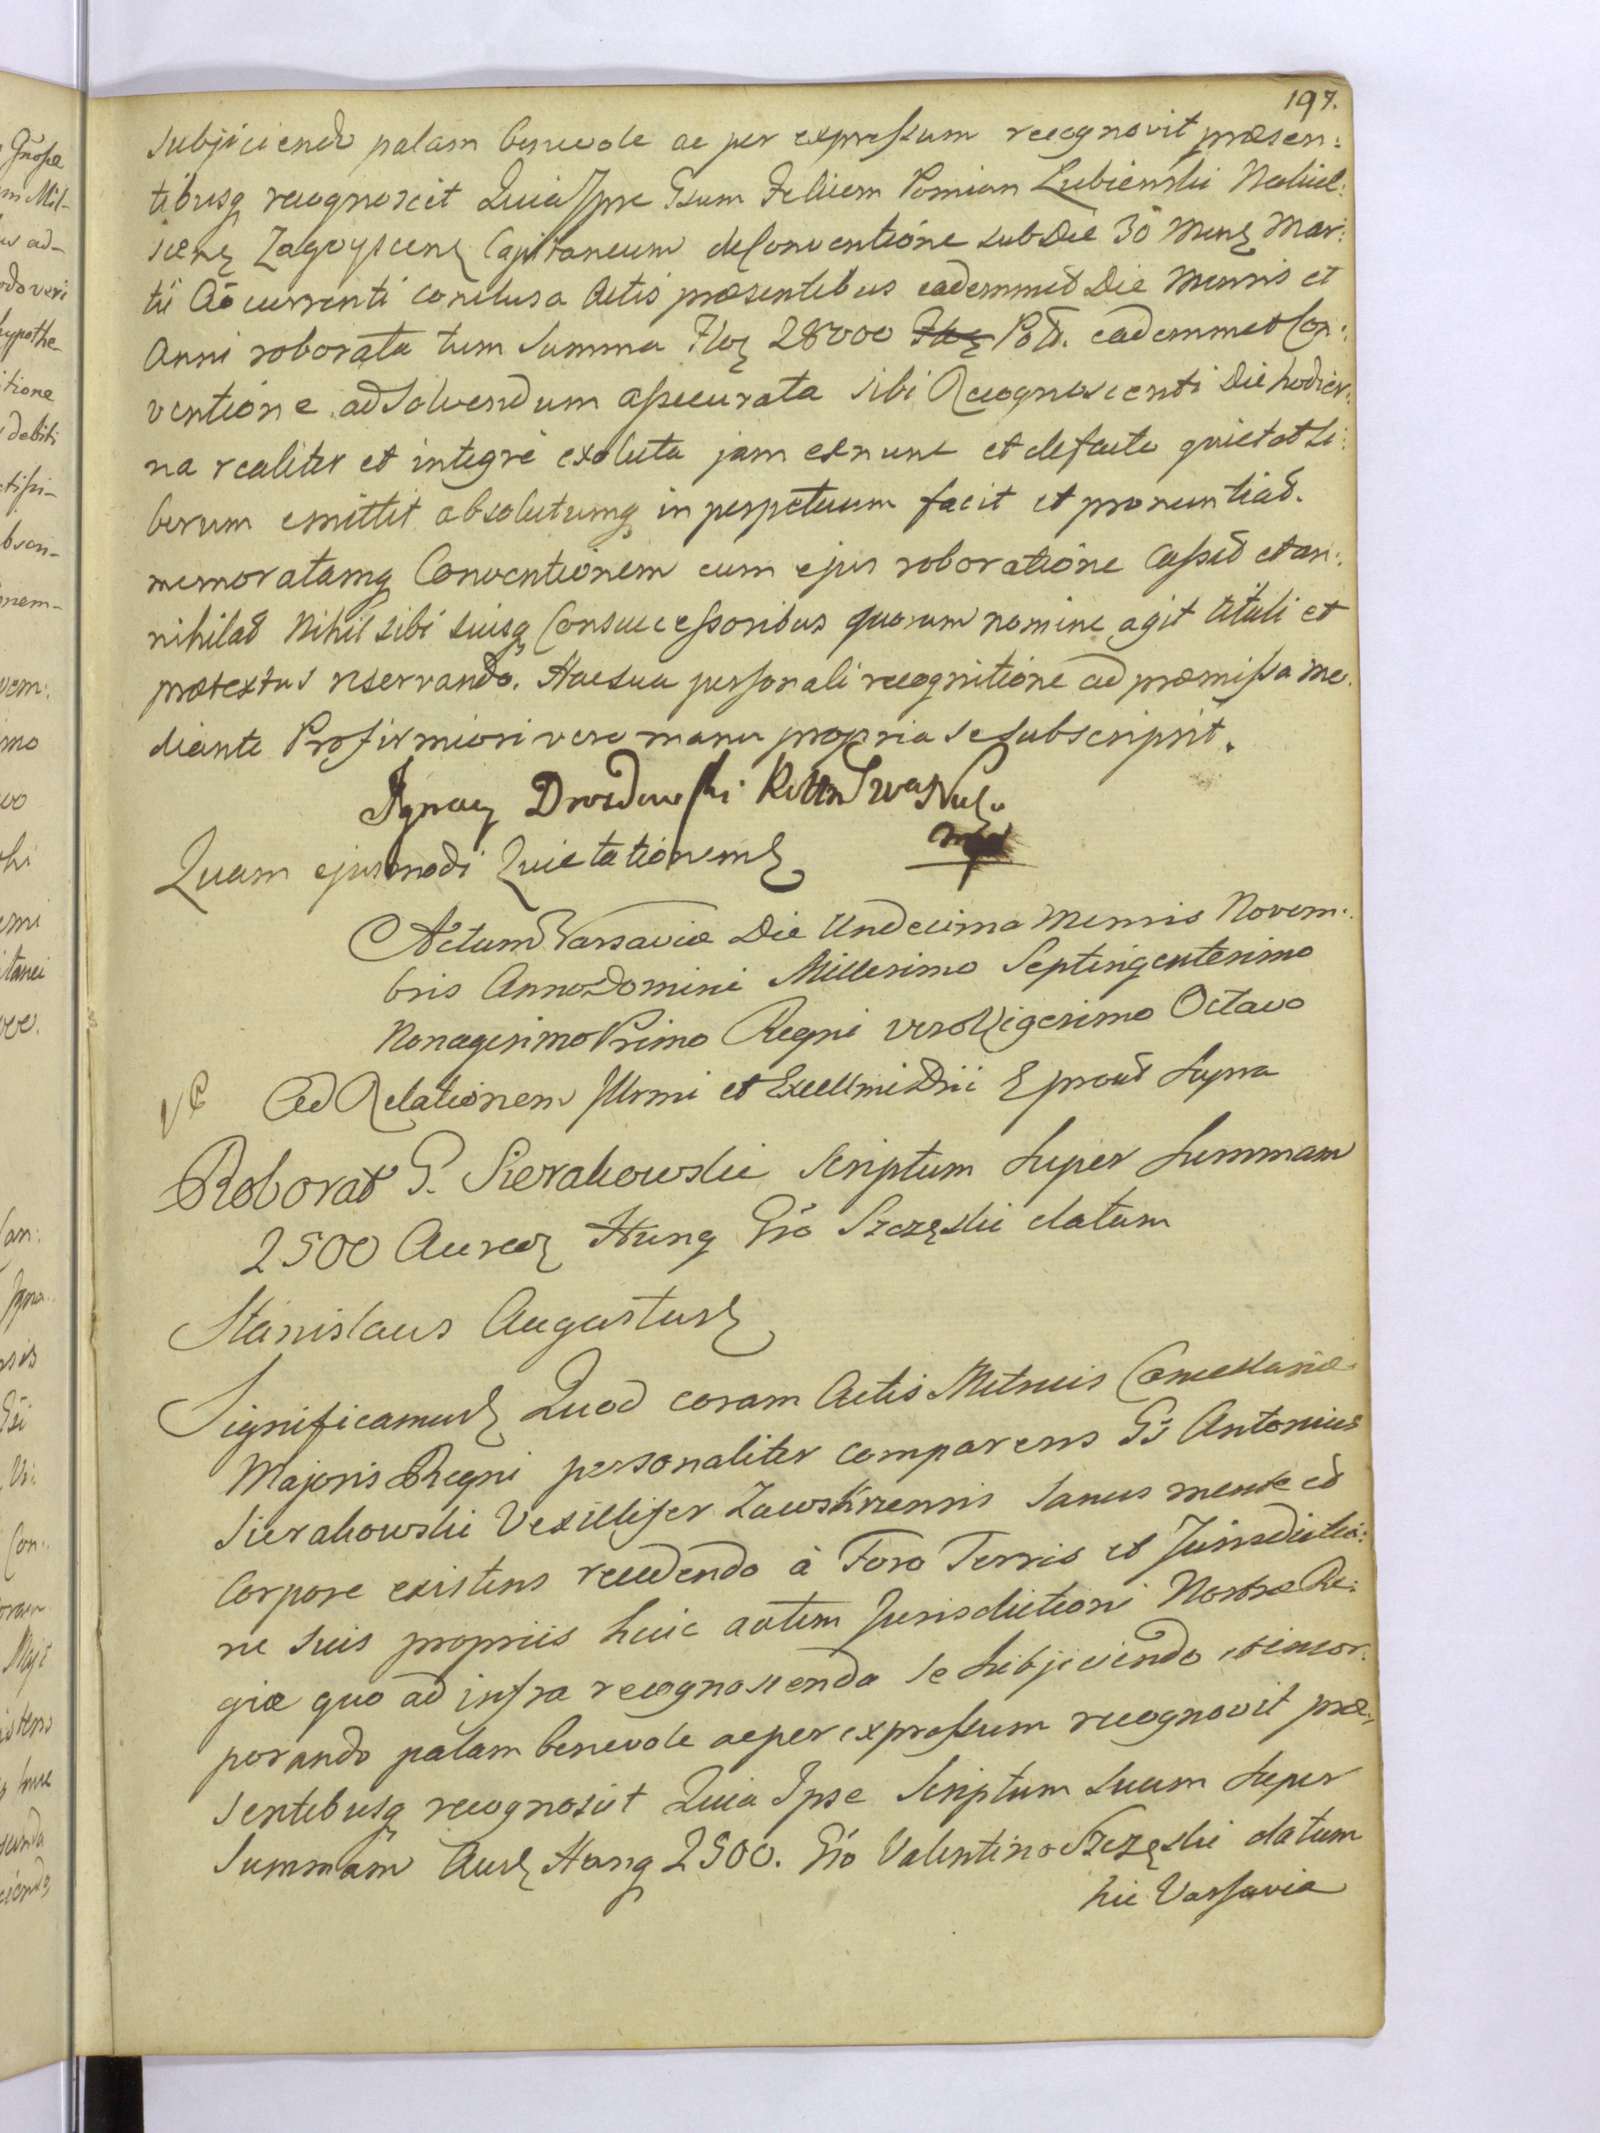 197.
subjiciendo palam benevole ac per expressum recognovit præsen:
tibusq recognoscit Quia Ipse Gsum Felicem Pomian Łubienski Nakiel:
scens Zagoyscens Capitaneum de Conventione sub Die 30 Mens Mar:
tii Ao currenti conclusa Actis præsentibus eademmet Die Mensis et
Anni roborata tum Summa Flor 28000 Pol. eademmet Con:
ventione ad Solvendum assecurata sibi Recognoscenti Die hodier:
na realiter et integre exoluta jam ex nunc et de facto quietat li:
berum emittit absolutumq in perpetuum facit et pronuntiat.
memoratamq Conventionem cum ejus roboratione Cassat et an:
nihilat Nihil sibi suisq Consuccessoribus quorum nomine agit tituli et
prætextus reservando. Hac sua personali recognitione ad præmissa me:
diante Pro firmiori vero manu propria se subscripsit.
Ignacy Drozdowski
mp
Quam ejusmodi Quietationem
Actum Varsaviæ Die Undecima Mensis Novem:
bris Anno Domini Millesimo Septingentesimo
Nonagesimo Primo Regni vero Vigesimo Octavo
Ad Relationem Illrmi et Excellmi Dni prout Supra
Roborat G. Sierakowski Scriptum Super Summam
2500 Aureor Hung Gso Szczęski datum
Stanislaus Augustus
Significamus Quod coram Actis Metrices Cancellariæ
Majoris Regni personaliter comparens Gs Antonius
Sierakowski Vexillifer Zawskrzensis Sanus mente et
Corpore existens recedendo à Foro Terris et Jurisdictio:
ne suis propriis huic autem Jurisdictioni Nostræ Re:
giæ quo ad infra recognoscenda Se Subjiciendo et incor:
porando palam benevole ac per expressum recognovit præ:
sentibusq recognoscit Quia Ipse Scriptum suum Super
Summam Aur Hung 2500. Gso Valentino Szczęski datum
hic Varsavia